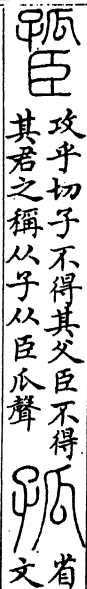 攻乎切子不得其父臣不得
其君之稱从子从臣瓜聲
孤
省
文